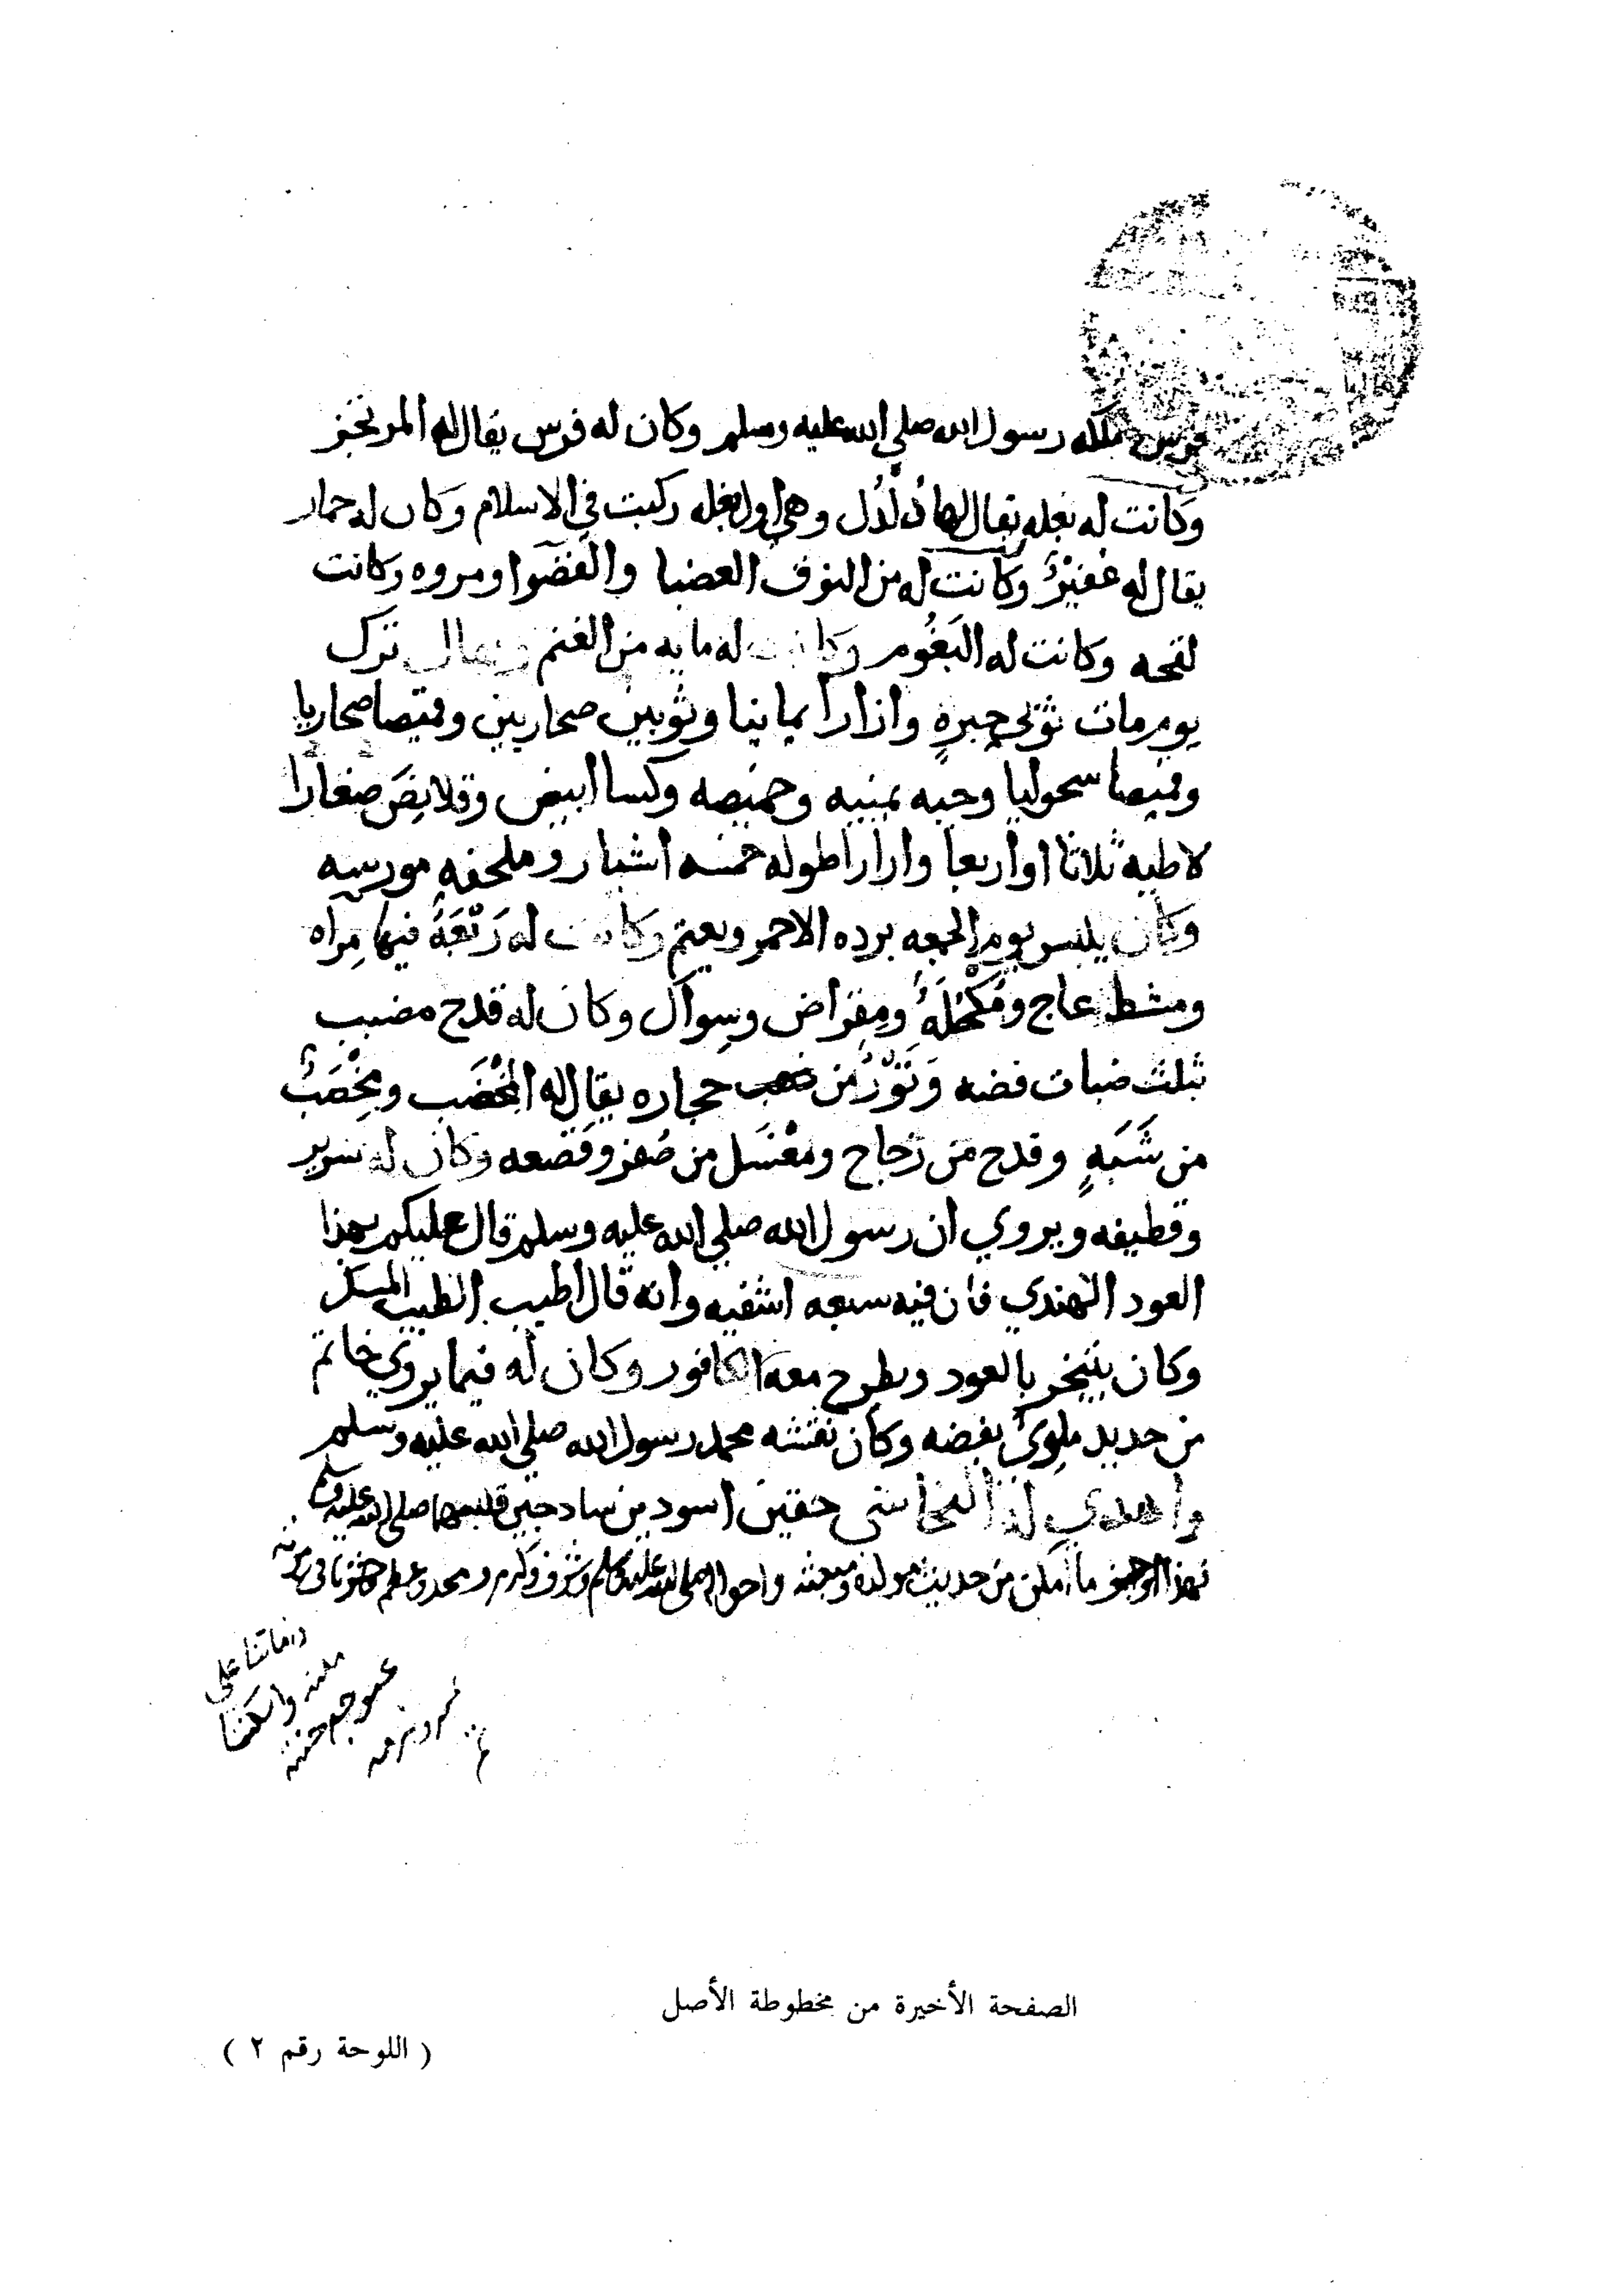 فرس ملكه رسول الله صلي الله عليه وسلم وكان له فرس يقال له المرتجز
وكانت له بغله يقال لها دُلدُل وهي اول بغله ركبت في الاسلام وكان له حمار
يقال له عُفَيْرٌ وكانت له من النوق العضبا والقصوا ومروه وكانت
لقحه وكانت له البَغُوم وكانت له مايه من الغنم ترك
يوم مات ثوبي حِبرهٍ وازاراً يمانيا وثوبين صحاريين وقميصا صحاريا
وقميصا سحوليا وجبه يمنيه وخميصه وكسا ابيض وقلانِسَ صغاراً
لاطيه ثلاثا او اربعا وازاراً طوله خمسه اشبار وملحفه مورسه
وكان يلبس يوم الجمعه برده الاحمر ويعتم وكانت له رَبْعَةٌ فيها مِراه
ومشط عاج ومُكْحُلَةٌ ومِقراض وسِواك وكان له قدح مضبب
بثلث ضبات فضه وَتَوْرٌ من حجاره يقال له المِخْضَب ومِخْضَبٌ
من شَبَهٍ وقدح من زجاج ومغْتَسَل من صُفر وقَصعه وكان له سرير
وقطيفه ويروي ان رسول الله صلي الله عليه وسلم قال عليكم بهذا
العود الهندي فان فيه سبعه اشفيه وانه قال اطيب الطيب المسك
وكان يتبخر بالعود ويطرح معه الكافور وكان له فيما يروي خاتم
من حديد ملوِيٌّ بفضه وكان نقشه محمد رسول الله صلي الله عليه وسلم
واهدي له النجاشي خفين اسودين ساذجين فلبسهما صلى الله عليه وسلم
فهذا ما امكن من حديث مولده ومبعثه واحواله صلى الله عليه وسلم وشرف وكرم
واماتنا على
ملته واسكننا
الصفحة الأخيرة من مخطوطة الأصل
( اللوحة رقم ٢ )